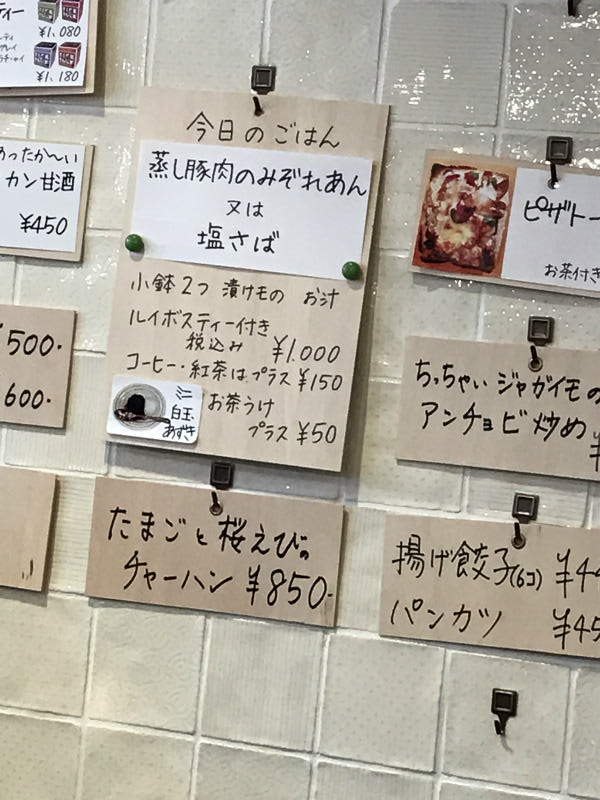 ティー
¥1,080
¥1,180
あったか〜い
カン甘酒
¥450
¥500.
600.
今日のごはん
蒸し豚肉のみぞれあん
又は
塩さば
小鉢2つ 漬けもの お汁
ルイボスティー付き
税込み ¥1.000
コーヒー・紅茶はプラス¥150
ミニ
白玉
あずき
お茶うけ
プラス ¥50
たまごと桜えびの
チャーハン ¥850.
ピザトー
お茶付き
ちっちゃいジャガイモの
アンチョビ炒め ¥
揚げ餃子(6コ) ¥4
パンカツ ¥45